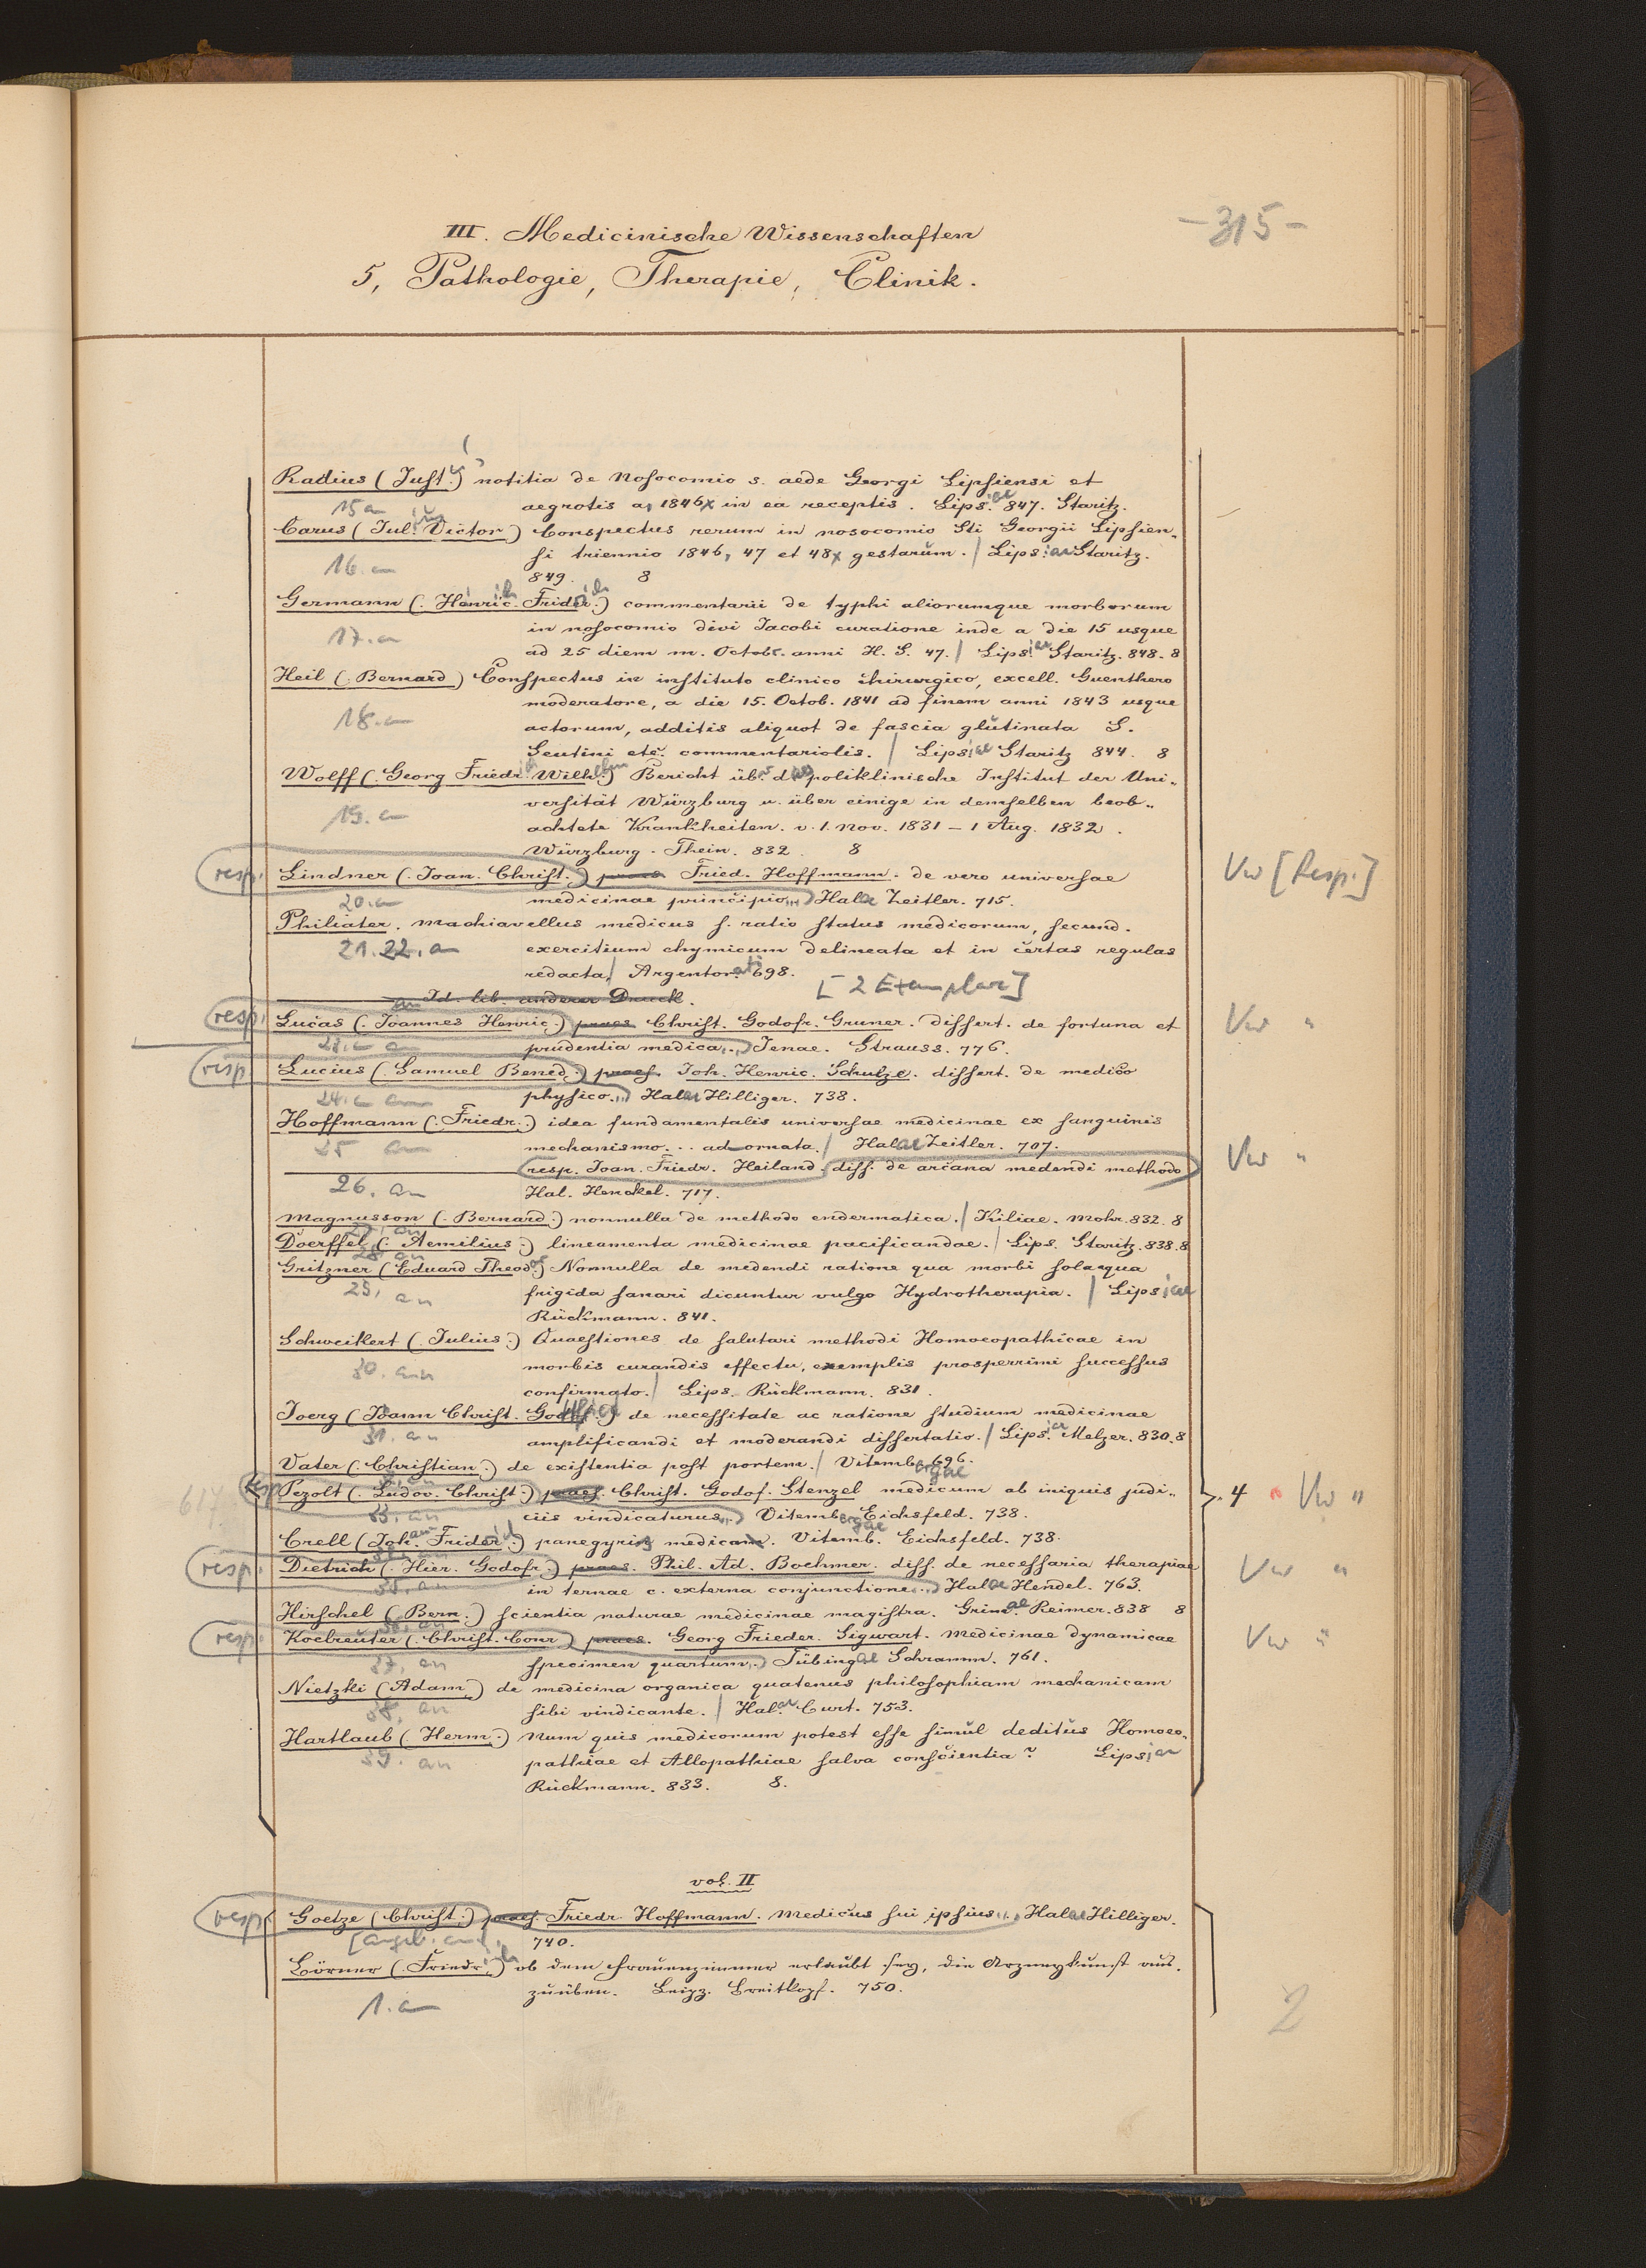 -315-
III. Medicinische Wissenschaften
5, Pathologie, Therapie, Clinik.
Radius (Just.us) notitia de Nosocomio s. aede Georgi Lipsiensi et
15 a aegrotis a, 1846 in ea receptis. Lips.iae 847. Staritz.
Carus (Jul.ius Victor) Conspectus rerum in nosocomio Sti Georgii Lipsien-
si triennio 1846, 47 et 48 gestarum. / Lips.iae Staritz.
16. a 849. 8
Germann (. Henric. Frider.) commentarii de typhi aliorumque morborum
17. a in nosocomio divi Jacobi curatione inde a die 15 usque
ad 25 diem m. Octobr. anni H. S. 47. / Lips.iae Staritz. 848. 8
Heil (. Bernard) Conspectus in instituto clinico chirurgico, excell. Guenthero
moderatore, a die 15. Octob. 1841 ad finem anni 1843 usque
18. a actorum, additis aliquot de fascia glutinata S.
Seutini etc. commentariolis. / Lipsiae Staritz 844. 8
Wolff (. Georg Friedr. Wilhelm) Bericht üb. d. poliklinische Institut der Uni-
versität Würzburg u. über einige in demselben beob-
19. a achtete Krankheiten. v. 1. Nov. 1831 – 1 Aug. 1832.
Würzburg. Thein. 832. 8
resp. Lindner (. Joan. Christ.) praes. Fried. Hoffmann. de vero universae Vw [Resp.]
20. a medicinae principio...) Halae Zeitler. 715.
Philiater. Machiavellus medicus s. ratio status medicorum, secund.
21. 22. a exercitium chymicum delineata et in certas regulas
redacta, / Argentorati 698.
Id. lib. anderer Druck. [2 Exemplar]
resp. Lucas (. Joannes Henric.) praes Christ. Godofr. Gruner. dissert. de fortuna et Vw "
23. a prudentia medica...) Jenae. Strauss. 776.
resp. Lucius (. Samuel Bened.) praes. Joh. Henric. Schulze. dissert. de medico
24. a physico...) Halae Hilliger. 738.
Hoffmann (. Friedr.) idea fundamentalis universae medicinae ex sanguinis
25 an mechanismo... adornata. / Halae Zeitler. 707.
resp. Joan. Friedr. Heiland. diss. de arcana medendi methodo Vw "
26. an Hal. Henckel. 717.
Magnusson (. Bernard.) nonnulla de methodo endermatica. / Kiliae. Mohr. 832. 8
27. an
Doerffel (. Aemilius.) lineamenta medicinae pacificandae. / Lips. Staritz. 838. 8
28. an
Gritzner (Eduard Theod.) Nonnulla de medendi ratione qua morbi sola aqua
29, an frigida sanari dicuntur vulgo Hydrotherapia. / Lipsiae
Rückmann. 841.
Schweikert (. Julius.) Quaestiones de salutari methodi Homoeopathicae in
30. an morbis curandis effectu, exemplis prosperrimi successus
confirmato. / Lips. Rückmann. 831.
Joerg (Joann Christ. ) de necessitate ac ratione studium medicinae
31. an amplificandi et moderandi dissertatio. / Lips.iae Melzer. 830. 8
Vater (. Christian.) de existentia post portem. / Vitembergae 696.
resp Pezolt (. Ludov. Christ.) praes. Christ. Godof. Stenzel medicum ab iniquis judi- 4 Vw "
617.
33. an ciis vindicaturus...) Vitembergae Eichsfeld. 738.
Crell (Joh. Frider.) panegyris medicam. Vitemb. Eichsfeld. 738.
resp. Dietrich (. Hier. Godofr.) praes. Phil. Ad. Boehmer. diss. de necessaria therapiae Vw "
35. an internae c. externa conjunctione...) Halae Hendel. 763.
Hirschel (Bern.) scientia naturae medicinae magistra. Grimae Reimer. 838 8
36. an
resp. Koelreuter (. Christ. Conr) praes. Georg Frieder. Sigwart. Medicinae dynamicae Vw "
37. an specimen quartum..) Tübingae Schramm. 761.
Nietzki (Adam) de medicina organica quatenus philosophiam mechanicam
38. an sibi vindicante. / Hal.ae Curt. 753.
Hartlaub (Herm.) Num quis medicorum potest esse simul deditus Homoeo-
39. an pathiae et Allopathiae salva conscientia? Lipsiae
Rückmann. 833. 8.
vol. II
resp. Goetze (Christ.) praes. Friedr. Hoffmann. Medicus sui ipsius... Halae Hilliger.
740.
Börner (. Friedrich) ob dem Frauenzimmer erlaubt sey, die Arzneykunst aus-
1. a zuüben. Leipz. Breitkopf. 750.
2